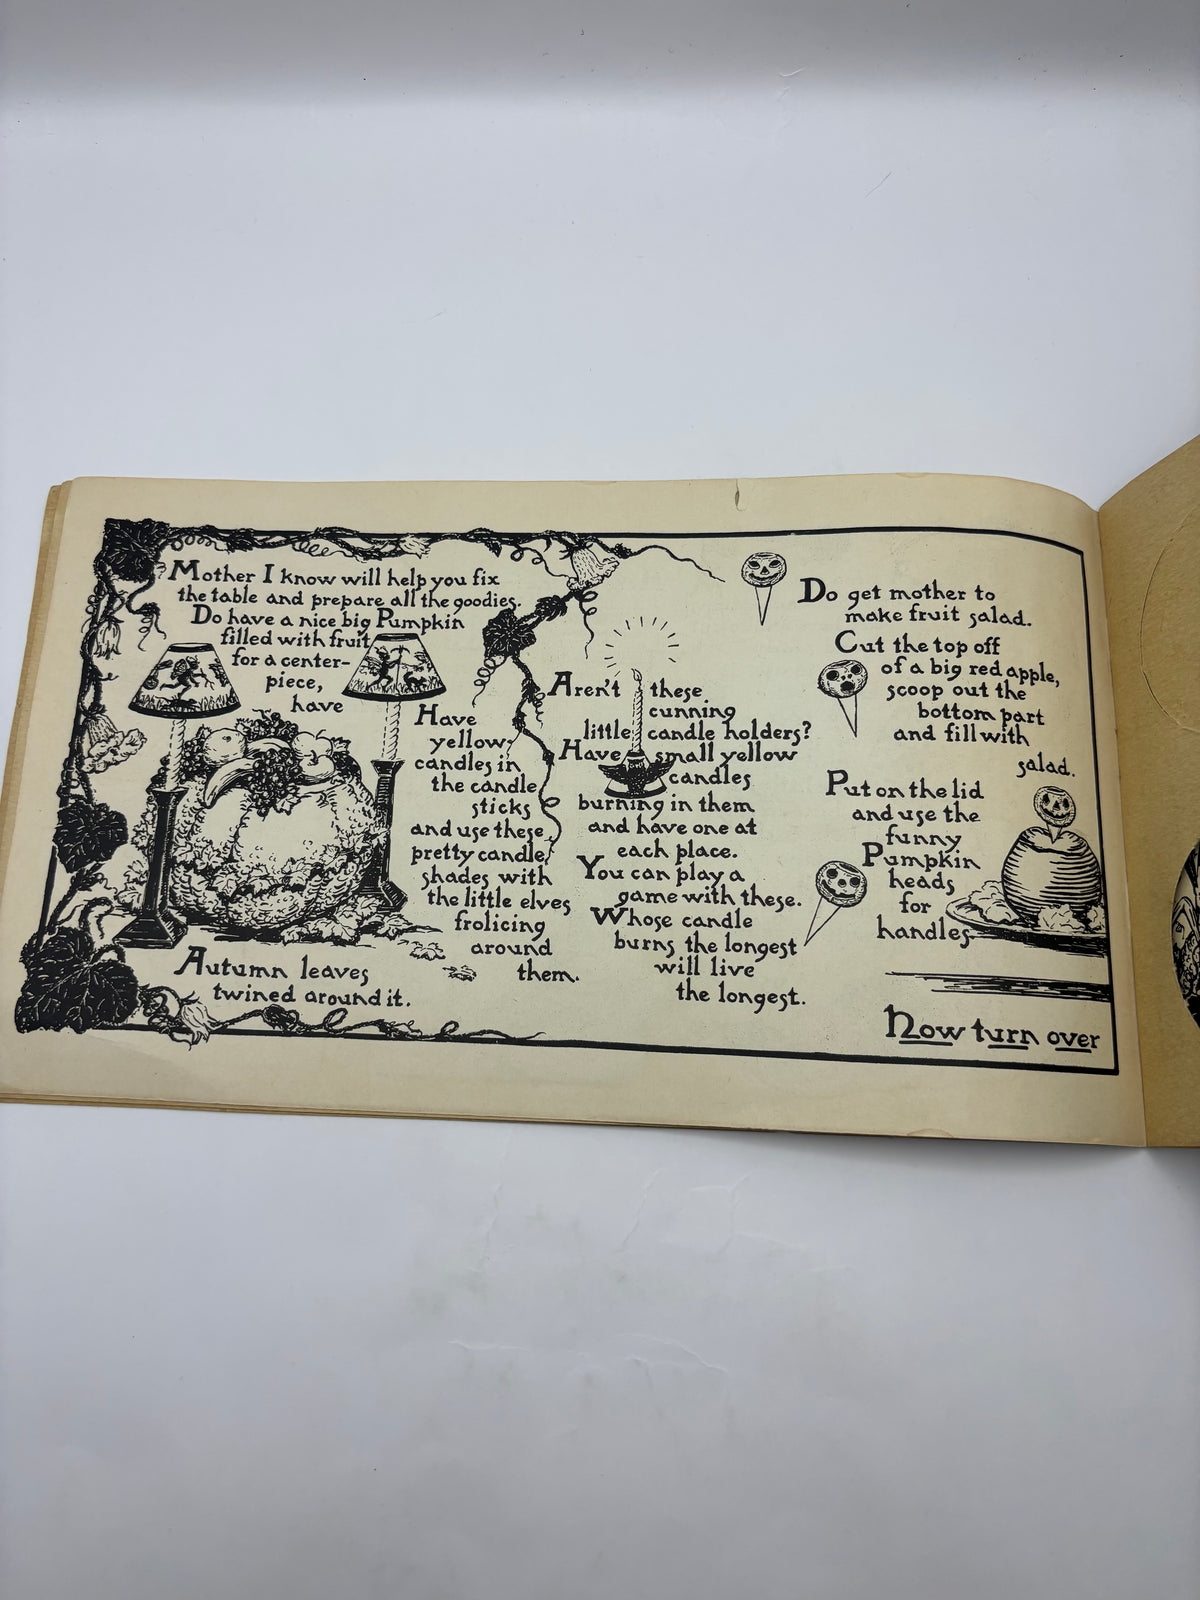 Mother I know will help you fix
the table and prepare all the goodies.
Do have a nice big Pumpkin
filled with fruit
for a center-
piece,
have
Autumn leaves
twined around it.
Have
yellow
candles in
the candle
sticks
and use these
pretty candle
shades with
the little elves
frolicing
around
them.
Aren't these
cunning
little candle holders?
Have small yellow
candles
burning in them
and have one at
each place.
You can play a
game with these.
Whose candle
burns the longest
will live
the longest.
Do get mother to
make fruit salad.
Cut the top off
of a big red apple,
scoop out the
bottom part
and fill with
salad.
Put on the lid
and use the
funny
Pumpkin
heads
for
handles
Now turn over